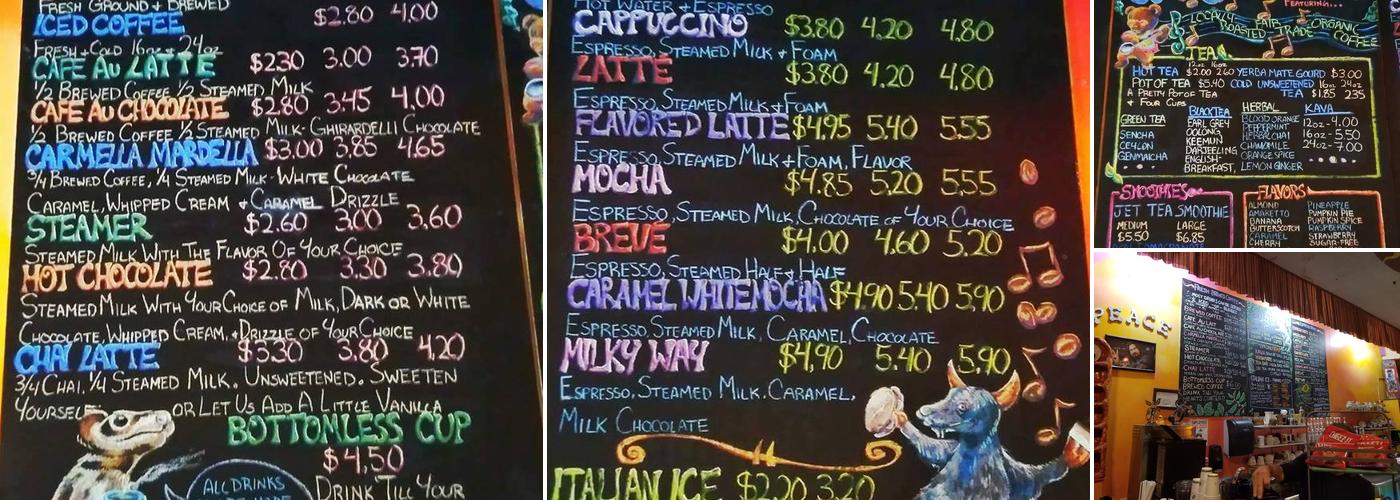 FRESH GROUND & BREWED
ICED COFFEE $2.80 4.00
FRESH & COLD 16oz & 24oz
CAFE AU LATTE $2.30 3.00 3.70
1/2 BREWED COFFEE 1/2 STEAMED MILK
CAFE AU CHOCOLATE $2.80 3.45 4.00
1/2 BREWED COFFEE 1/2 STEAMED MILK - GHIRARDELLI CHOCOLATE
CARMELLA MARDELLA $3.00 3.85 4.65
3/4 BREWED COFFEE, 1/4 STEAMED MILK - WHITE CHOCOLATE
CARAMEL, WHIPPED CREAM & CARAMEL DRIZZLE
STEAMER $2.60 3.00 3.60
STEAMED MILK WITH THE FLAVOR OF YOUR CHOICE
HOT CHOCOLATE $2.80 3.30 3.80
STEAMED MILK WITH YOUR CHOICE OF MILK, DARK OR WHITE
CHOCOLATE, WHIPPED CREAM, & DRIZZLE OF YOUR CHOICE
CHAI LATTE $5.30 3.80 4.20
3/4 CHAI, 1/4 STEAMED MILK. UNSWEETENED. SWEETEN
YOURSELF OR LET US ADD A LITTLE VANILLA
BOTTOMLESS CUP
$4.50
ALL DRINKS
DRINK TILL YOUR
HOT WATER & ESPRESSO
CAPPUCCINO $3.80 4.20 4.80
ESPRESSO, STEAMED MILK & FOAM
LATTE $3.80 4.20 4.80
ESPRESSO, STEAMED MILK & FOAM
FLAVORED LATTE $4.95 5.40 5.55
ESPRESSO, STEAMED MILK & FOAM, FLAVOR
MOCHA $4.85 5.20 5.55
ESPRESSO, STEAMED MILK, CHOCOLATE OF YOUR CHOICE
BREVE $4.00 4.60 5.20
ESPRESSO, STEAMED HALF & HALF
CARAMEL WHITE MOCHA $4.90 5.40 5.90
ESPRESSO, STEAMED MILK, CARAMEL, CHOCOLATE
MILKY WAY $4.90 5.40 5.90
ESPRESSO, STEAMED MILK, CARAMEL,
MILK CHOCOLATE
ITALIAN ICE $2.20 3.20
FEATURING...
LOCALLY ROASTED FAIR TRADE ORGANIC COFFEE
TEA
12oz 16oz
HOT TEA $2.00 2.60 YERBA MATE GOURD $3.00
POT OF TEA $5.40 COLD UNSWEETENED 16oz 24oz
A PRETTY POT OF TEA TEA $1.85 2.35
& FOUR CUPS
GREEN TEA
SENCHA
CEYLON
GENMAICHA
BLACK TEA
EARL GREY
OOLONG
KEEMUN
DARJEELING
ENGLISH-
BREAKFAST,
HERBAL
BLOOD ORANGE
PEPPERMINT
HERBAL CHAI
CHAMOMILE
ORANGE SPICE
LEMON GINGER
KAVA
12oz - 4.00
16oz - 5.50
24oz - 7.00
SMOOTHIES
JET TEA SMOOTHIE
MEDIUM LARGE
$5.50 $6.85
FLAVORS
ALMOND
AMARETTO
BANANA
BUTTERSCOTCH
CARAMEL
CHERRY
PINEAPPLE
PUMPKIN PIE
PUMPKIN SPICE
RASPBERRY
STRAWBERRY
SUGAR-FREE
PEACE
FRESH BREWED COFFEE
BREWED COFFEE
CAFE AU LAIT
STEAMER
HOT CHOCOLATE
CHAI LATTE
BOTTOMLESS CUP
BREWED COFFEE
DRINK TILL YOUR
HEARTS CONTENT